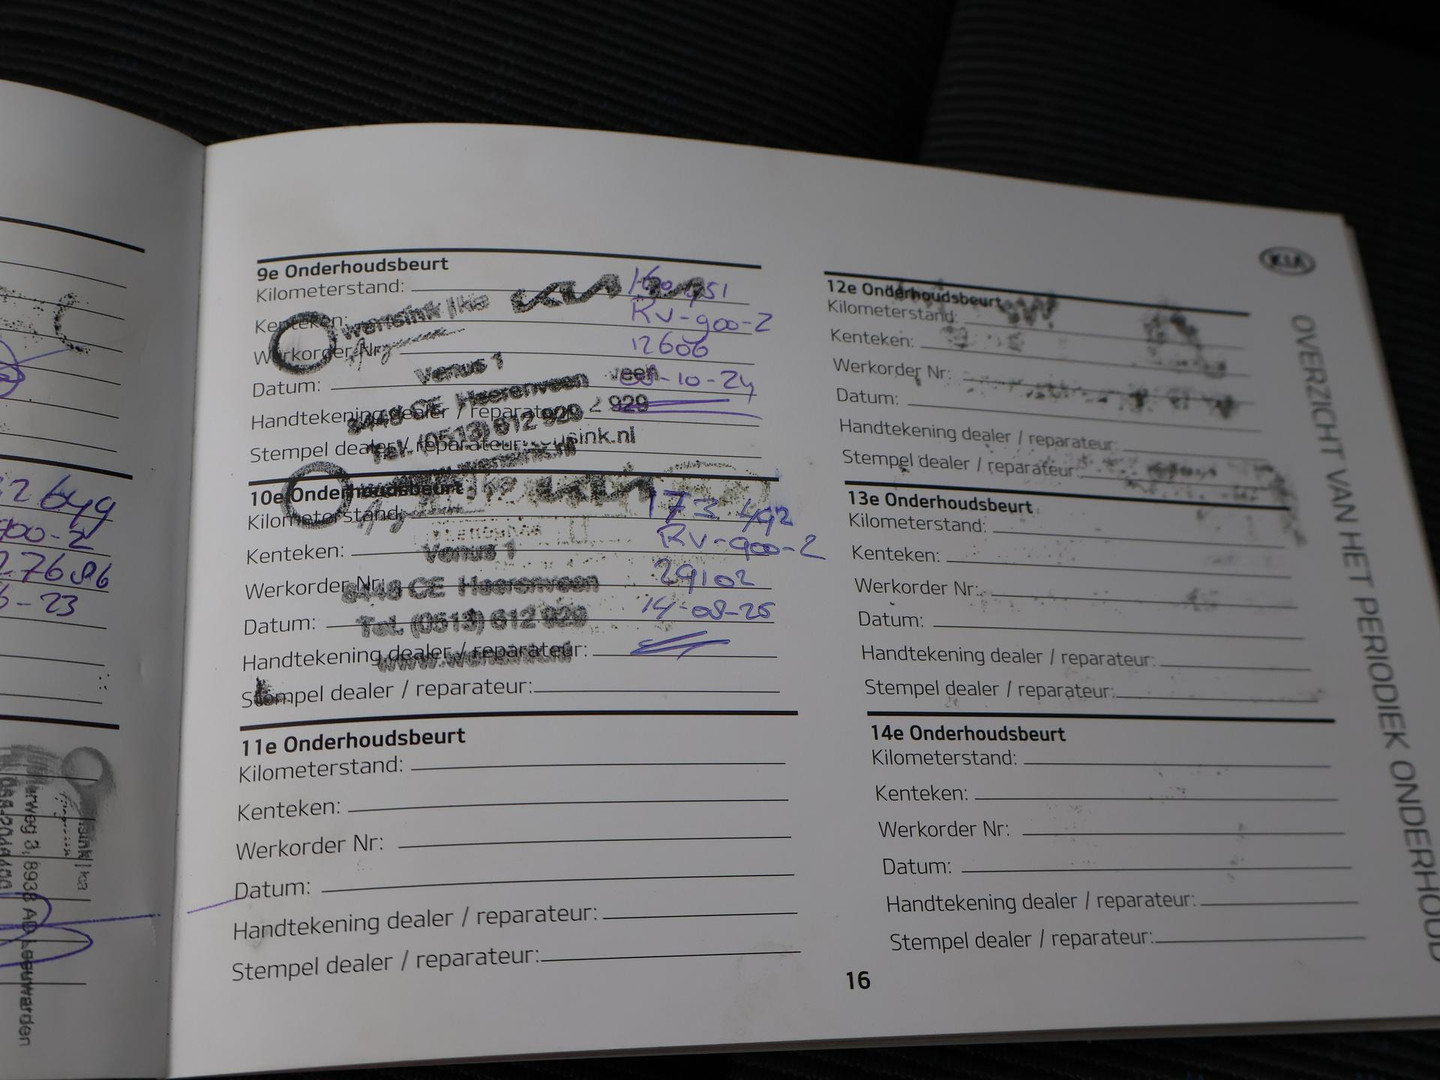 2649
900-2
27686
-23
erweg 3, 8938 AD Leeuwarden
9e Onderhoudsbeurt
Kilometerstand:
Kenteken: RV-900-2
Werkorder Nr: 12606
Datum: -10-24
Handtekening dealer / reparateur:
Stempel dealer / reparateur:
wensink | kia
Venus 1
8448 CE Heerenveen
Tel. (0513) 612 929
10e Onderhoudsbeurt
Kilometerstand: 173 492
Kenteken: RV-900-2
Werkorder Nr: 29102
Datum: 14-08-25
Handtekening dealer / reparateur:
Stempel dealer / reparateur:
Venus 1
8448 CE Heerenveen
Tel. (0513) 612 929
www.wensink.nl
11e Onderhoudsbeurt
Kilometerstand:
Kenteken:
Werkorder Nr:
Datum:
Handtekening dealer / reparateur:
Stempel dealer / reparateur:
12e Onderhoudsbeurt
Kilometerstand:
Kenteken:
Werkorder Nr:
Datum:
Handtekening dealer / reparateur:
Stempel dealer / reparateur:
13e Onderhoudsbeurt
Kilometerstand:
Kenteken:
Werkorder Nr:
Datum:
Handtekening dealer / reparateur:
Stempel dealer / reparateur:
14e Onderhoudsbeurt
Kilometerstand:
Kenteken:
Werkorder Nr:
Datum:
Handtekening dealer / reparateur:
Stempel dealer / reparateur:
16
KIA
OVERZICHT VAN HET PERIODIEK ONDERHOUD